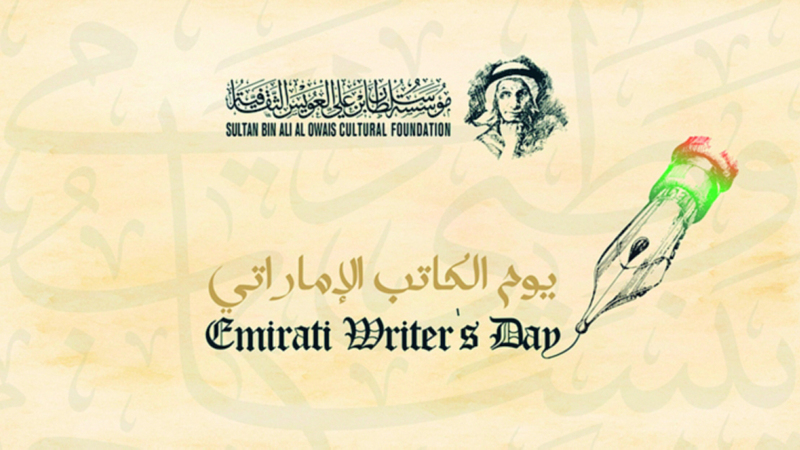 مؤسسة سلطان بن علي العويس الثقافية
SULTAN BIN ALI AL OWAIS CULTURAL FOUNDATION
يوم الكاتب الإماراتي
Emirati Writer's Day